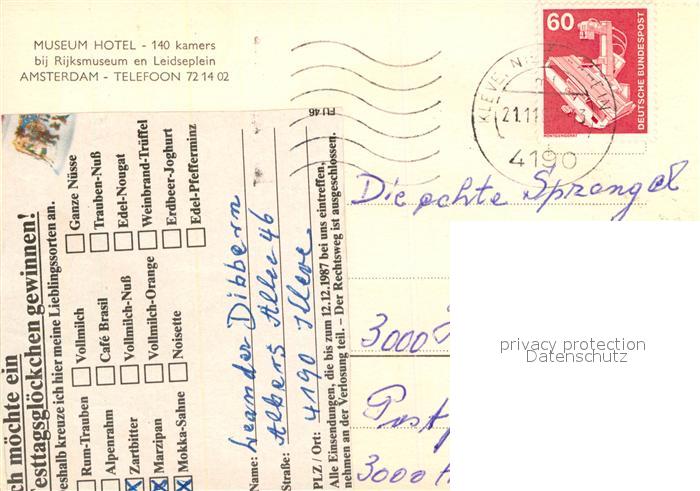 MUSEUM HOTEL - 140 kamers
bij Rijksmuseum en Leidseplein
AMSTERDAM - TELEFOON 72 14 02
60
DEUTSCHE BUNDESPOST
RÖNTGENGERÄT
KLEVE, NIEDERRHEIN
21.11
4190
Die echte Sprengel
3000
Postf
3000 H
privacy protection
Datenschutz
FU 46
ch möchte ein
esttagsglöckchen gewinnen!
Deshalb kreuze ich hier meine Lieblingssorten an.
Rum-Trauben
Vollmilch
Ganze Nüsse
Alpenrahm
Café Brasil
Trauben-Nuß
Zartbitter
Vollmilch-Nuß
Edel-Nougat
Marzipan
Vollmilch-Orange
Weinbrand-Trüffel
Mokka-Sahne
Noisette
Erdbeer-Joghurt
Edel-Pfefferminz
Name: Leander Dibbern
Straße: Albers Allee 46
PLZ / Ort: 4190 Kleve.
Alle Einsendungen, die bis zum 12.12.1987 bei uns eintreffen,
nehmen an der Verlosung teil. – Der Rechtsweg ist ausgeschlossen.